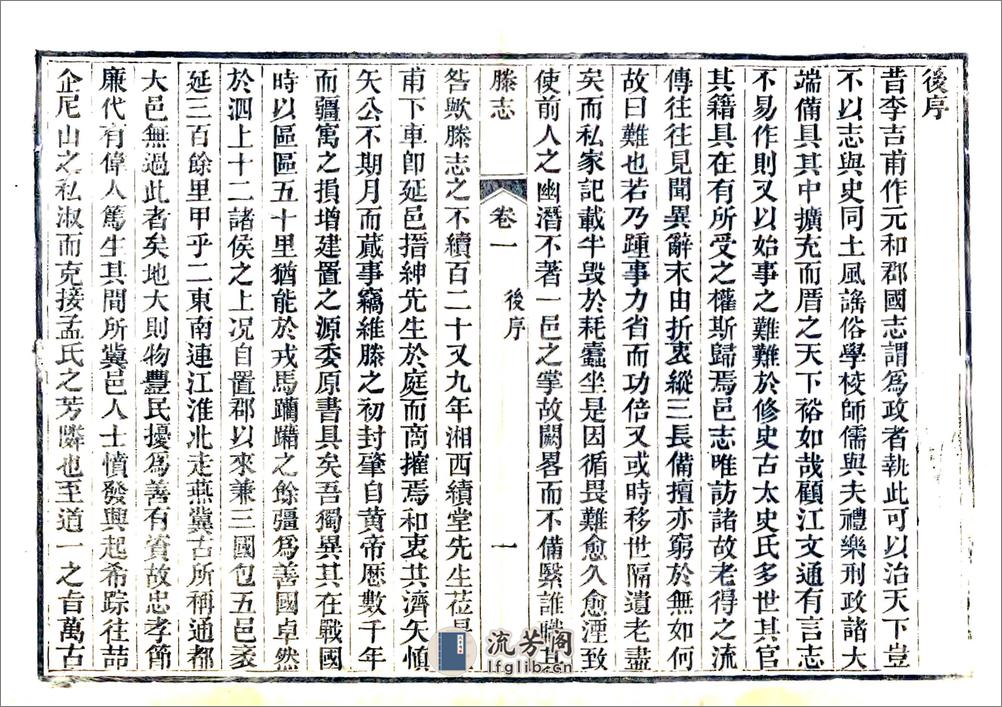 後序
昔李吉甫作元和郡國志謂爲政者執此可以治天下豈
不以志與史同土風謠俗學校師儒與夫禮樂刑政諸大
端備具其中擴充而厝之天下裕如哉顧江文通有言志
不易作則又以始事之難難於修史古太史氏多世其官
其籍具在有所受之權斯歸焉邑志唯訪諸故老得之流
傳往往見聞異辭末由折衷縱三長備擅亦窮於無如何
故曰難也若乃踵事力省而功倍又或時移世隔遺老盡
矣而私家記載半毀於耗蠹坐是因循畏難愈久愈湮致
使前人之幽潛不著一邑之掌故闕畧而不備緊誰職其
滕志
卷一
後序
一
咎歟滕志之不續百二十又九年湘西續堂先生莅
甫下車卽延邑搢紳先生於庭而商搉焉和衷其濟矢慎
矢公不期月而蕆事竊維滕之初封肇自黃帝歷數千年
而疆寓之損增建置之源委原書具矣吾獨異其在戰國
時以區區五十里猶能於戎馬躪蹋之餘彊爲善國卓然
於泗上十二諸侯之上况自置郡以來兼三國包五邑袤
延三百餘里甲乎二東南連江淮北走燕冀古所稱通都
大邑無過此者矣地大則物豐民擾爲善有資故忠孝節
廉代有偉人篤生其間所冀邑人士憤發興起希踪往喆
企尼山之私淑而克接孟氏之芳隣也至道一之旨萬古
流芳阁
lfglib.cn